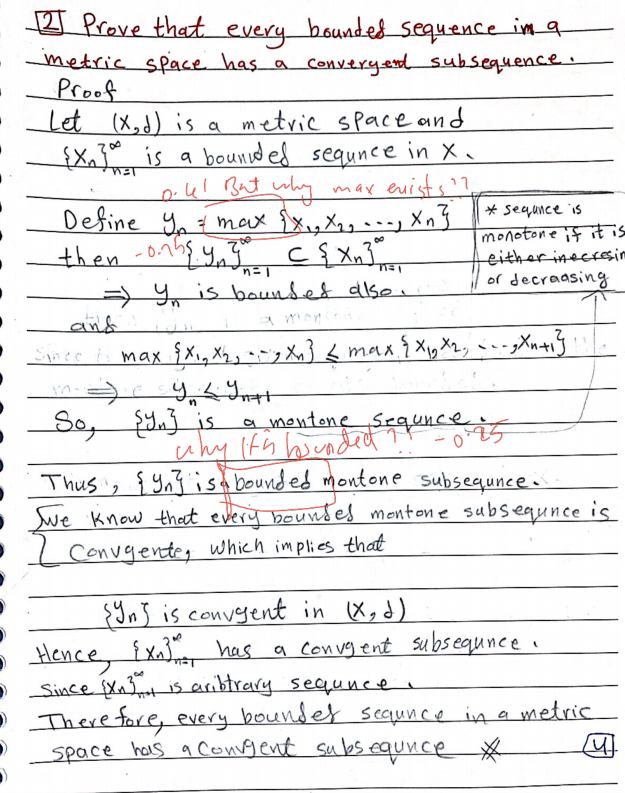 [2] Prove that every bounded sequence in a
metric space has a convergent subsequence.
Proof
Let (X,d) is a metric space and
{Xn}∞n=1 is a bounded sequnce in X.
But why max exists??
Define yn = max {x1, x2, ..., xn}
* sequnce is
monotone if it is
either inecresin
or decraasing
then -0.25 {yn}∞n=1 ⊂ {xn}∞n=1
⇒ yn is bounded also.
and
max {x1, x2, ..., xn} ≤ max {x1, x2, ..., xn+1}
⇒ yn ≤ yn+1
So, {yn} is a montone sequnce.
why it is bounded?? -0.25
Thus, {yn} is a bounded montone subsequnce.
We know that every bounded montone subsequnce is
Convgente, which implies that
{yn} is convgent in (X,d)
Hence, {xn}∞n=1 has a convgent subsequnce.
since {xn}∞n=1 is aribtrary sequnce.
Therefore, every bounded sequnce in a metric
space has a convgent subsequnce ※ [4]